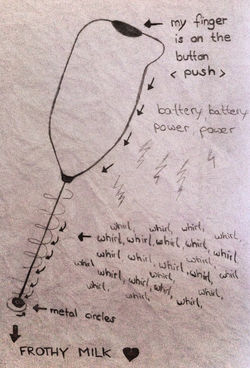 my finger
is on the
button
< push >
battery battery
power power
whirl, whirl, whirl,
whirl, whirl, whirl, whirl, whirl
whirl, whirl, whirl, whirl,
whirl, whirl, whirl, whirl
whirl, whirl, whirl, whirl,
whirl, whirl, whirl, whirl,
whirl, whirl,
metal circles
FROTHY MILK